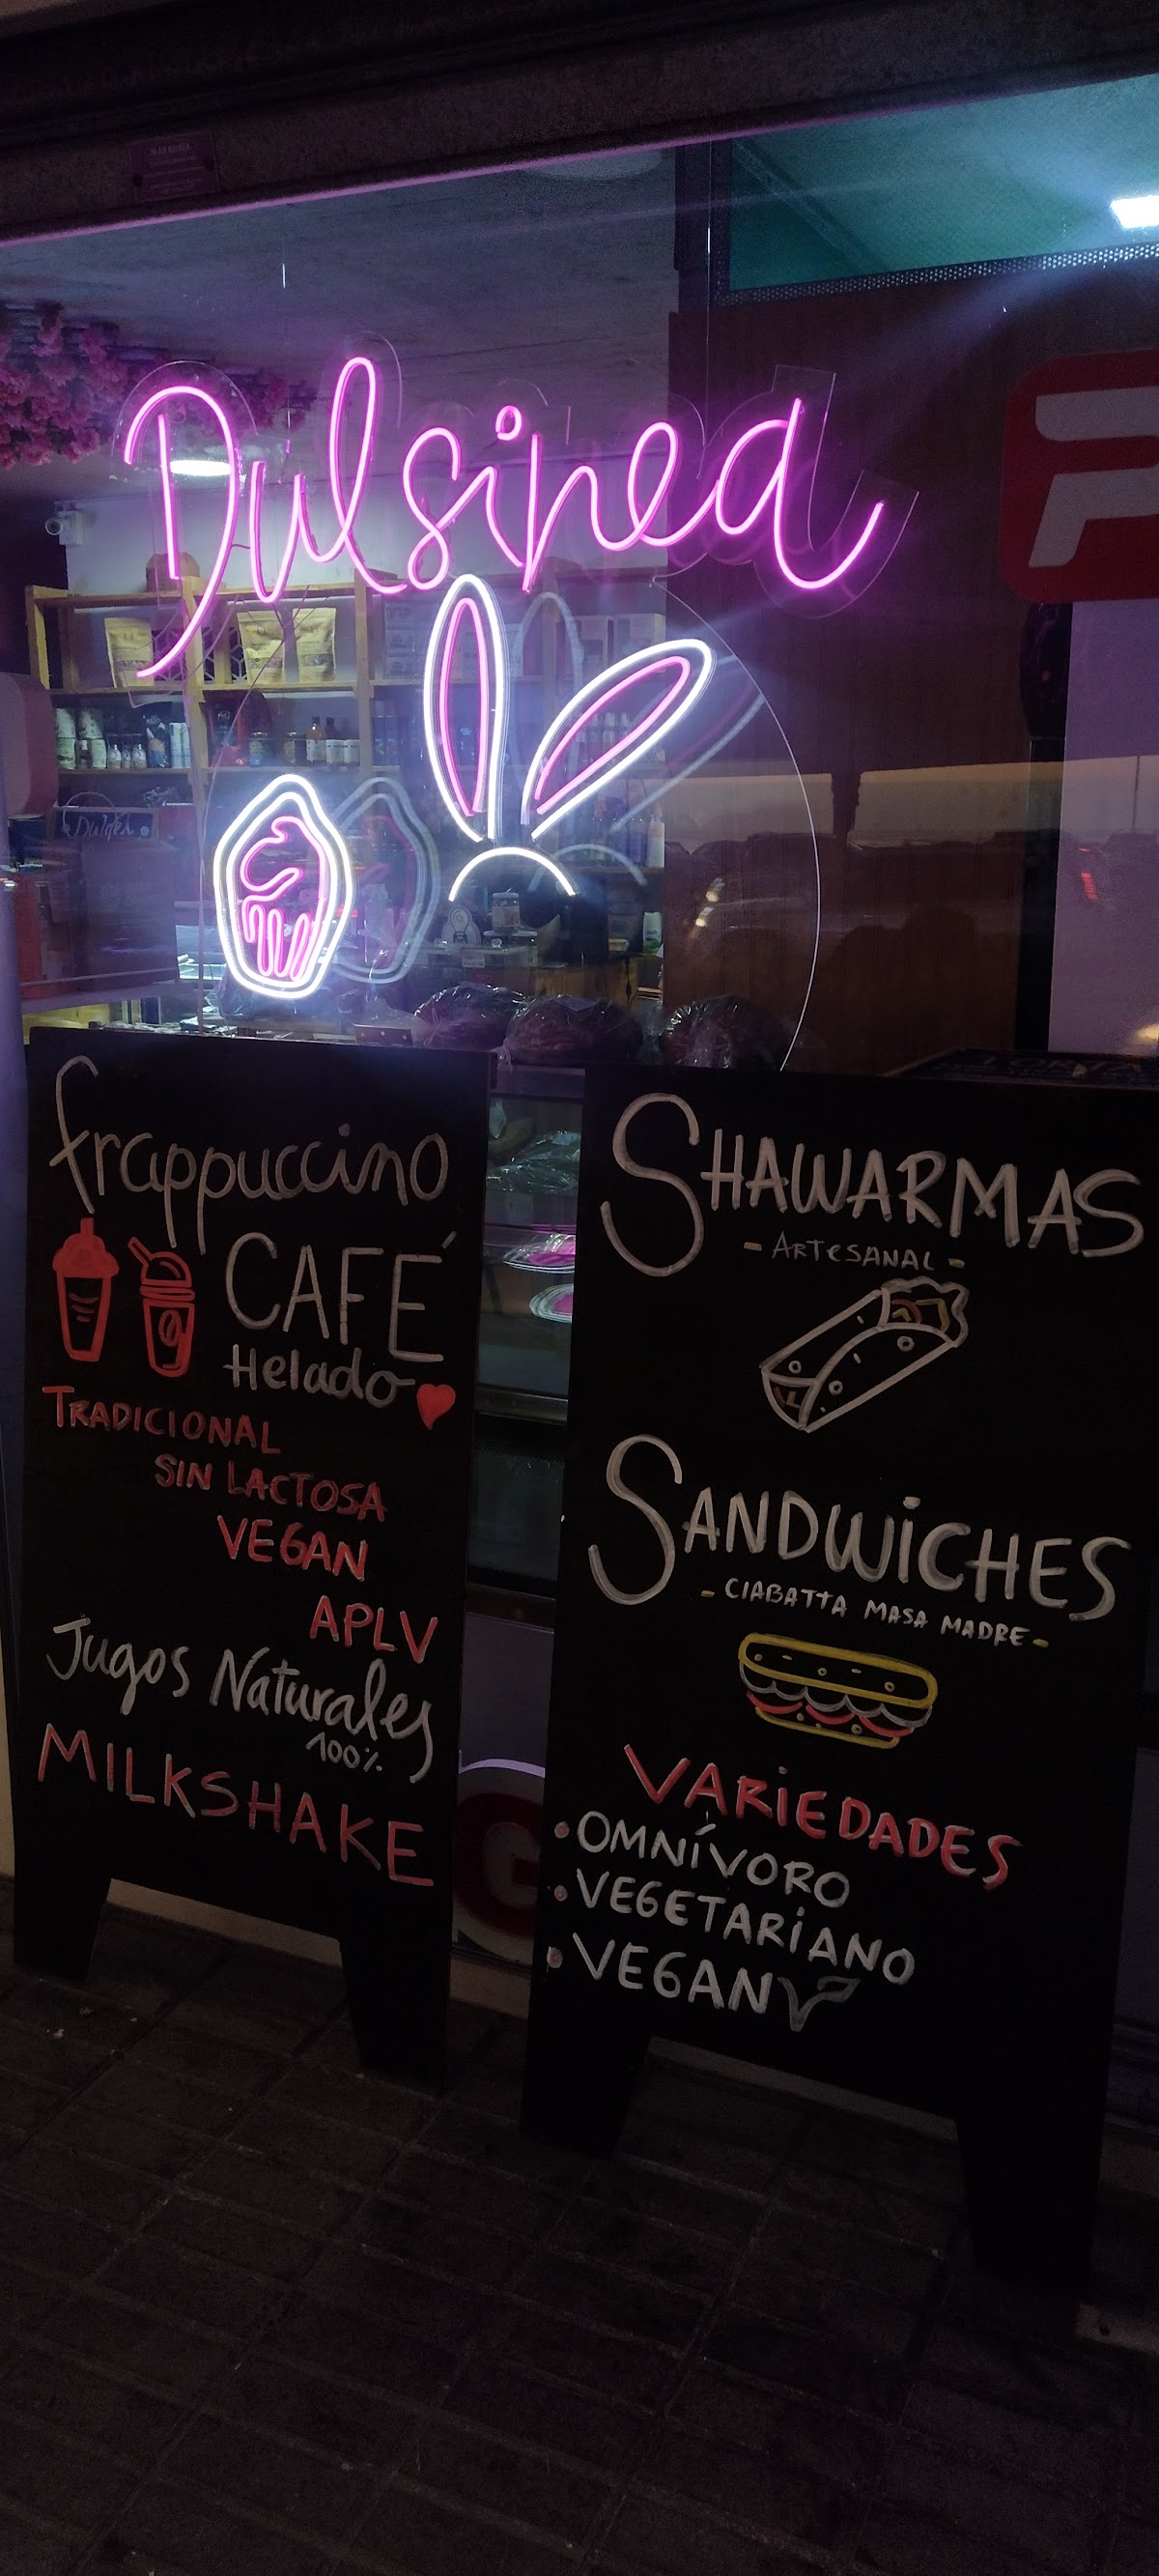 Dulsinea
Dulces
frappuccino
CAFÉ
Helado
TRADICIONAL
SIN LACTOSA
VEGAN
APLV
Jugos Naturales
100%
MILKSHAKE
SHAWARMAS
- ARTESANAL -
SANDWICHES
- CIABATTA MASA MADRE -
VARIEDADES
• OMNÍVORO
• VEGETARIANO
• VEGAN